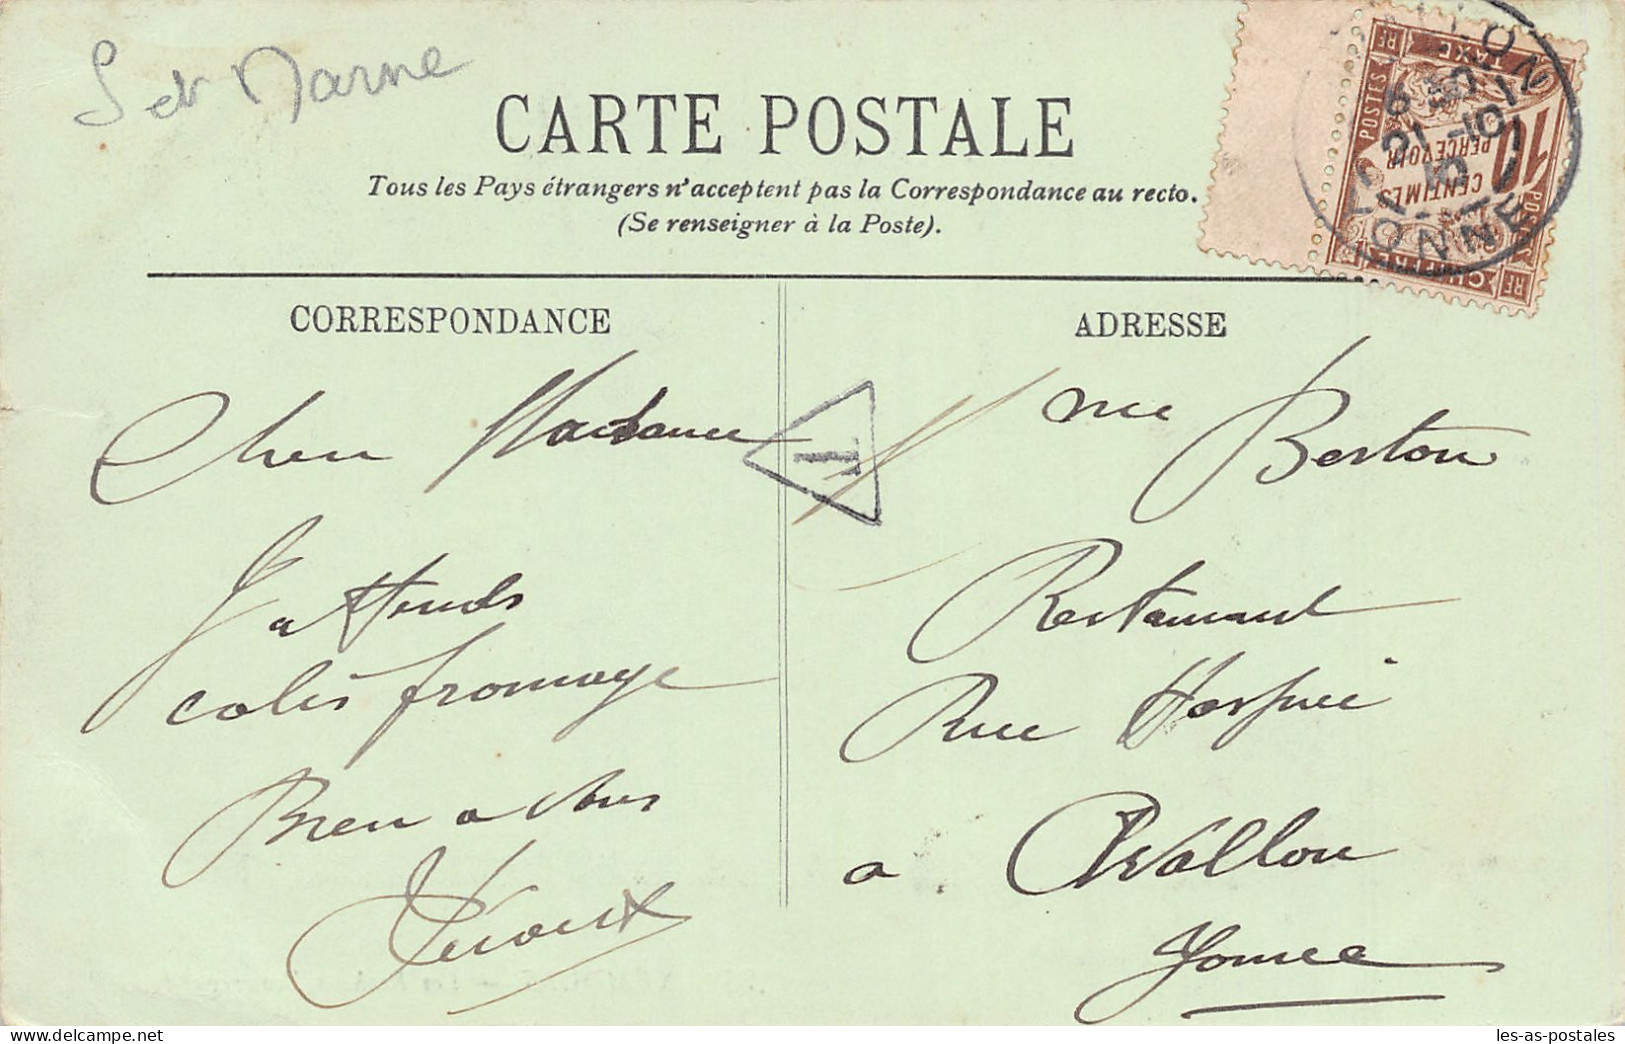 S et Marne
CARTE POSTALE
Tous les Pays étrangers n'acceptent pas la Correspondance au recto.
(Se renseigner à la Poste).
CORRESPONDANCE
Cher Madame
J'attends
colis fromage
Bien a vous
T
ADRESSE
Berton
Restaurant
Rue
a Avallon
Yonne
POSTES
CHIFFRE TAXE
10
CENTIMES
A PERCEVOIR
RF
AVALLON
21 -10
10
YONNE
les-as-postales
www.delcampe.net